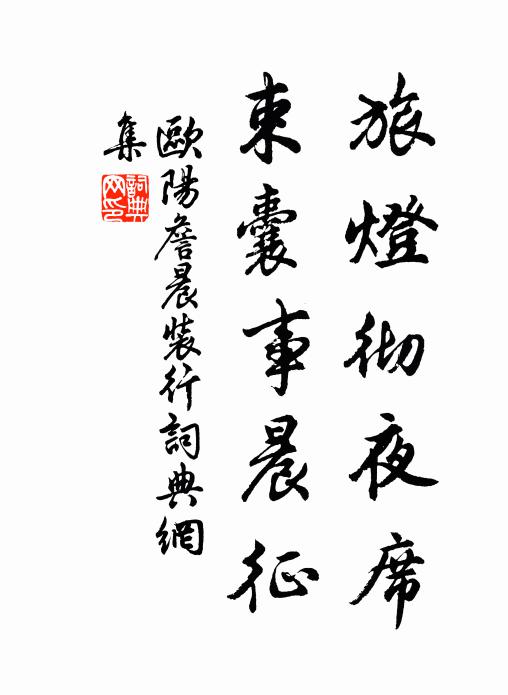 旅燈彻夜席
束囊事晨征
歐陽詹晨裝行詞典網
集
詞典
网印